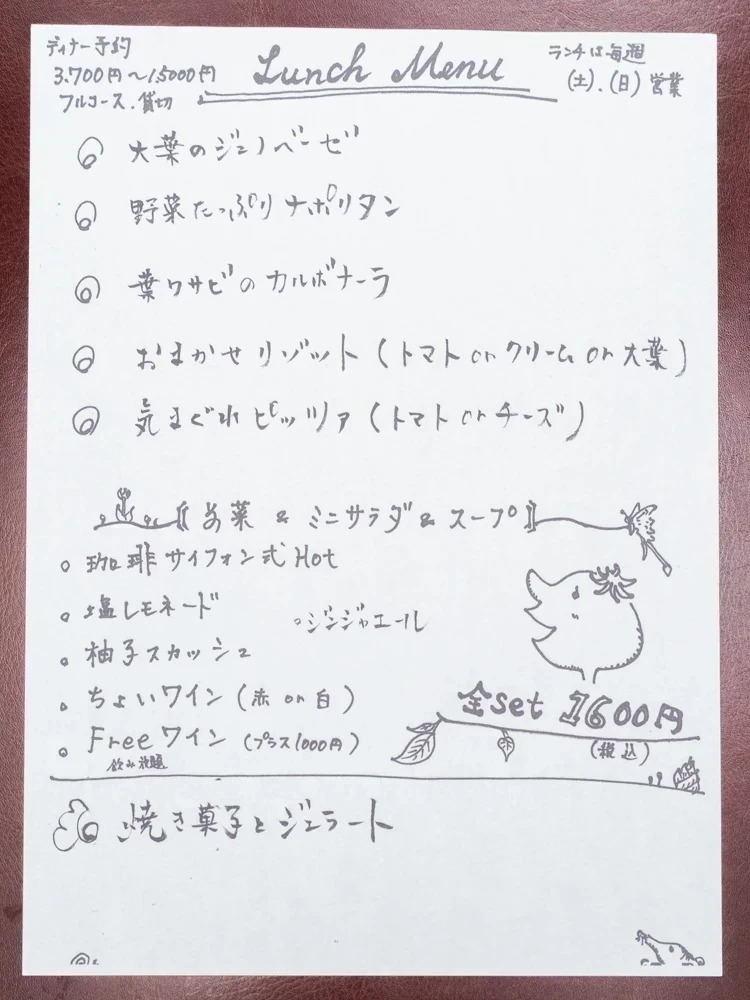 ディナー予約
3.700円〜15000円
フルコース.貸切
Lunch Menu
ランチは毎週
(土).(日)営業
大葉のジェノベーゼ
野菜たっぷりナポリタン
葉ワサビのカルボナーラ
おまかせリゾット(トマト or クリーム or 大葉)
気まぐれピッツァ(トマト or チーズ)
前菜 & ミニサラダ & スープ
珈琲サイフォン式 Hot
塩レモネード
ジンジャエール
柚子スカッシュ
ちょいワイン(赤 or 白)
Freeワイン(プラス1000円)
飲み放題
全set 1600円
(税込)
焼き菓子とジェラート